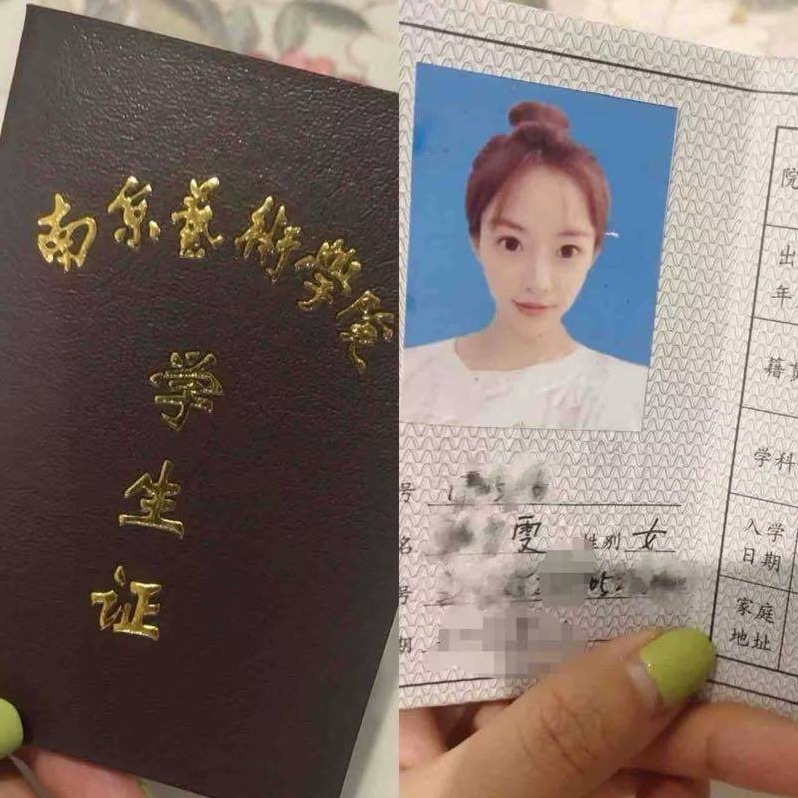 南京藝術學院
学生证
号
名 雯 性别 女
号 05
期
院
出
年
籍贯
学科
入学
日期
家庭
地址